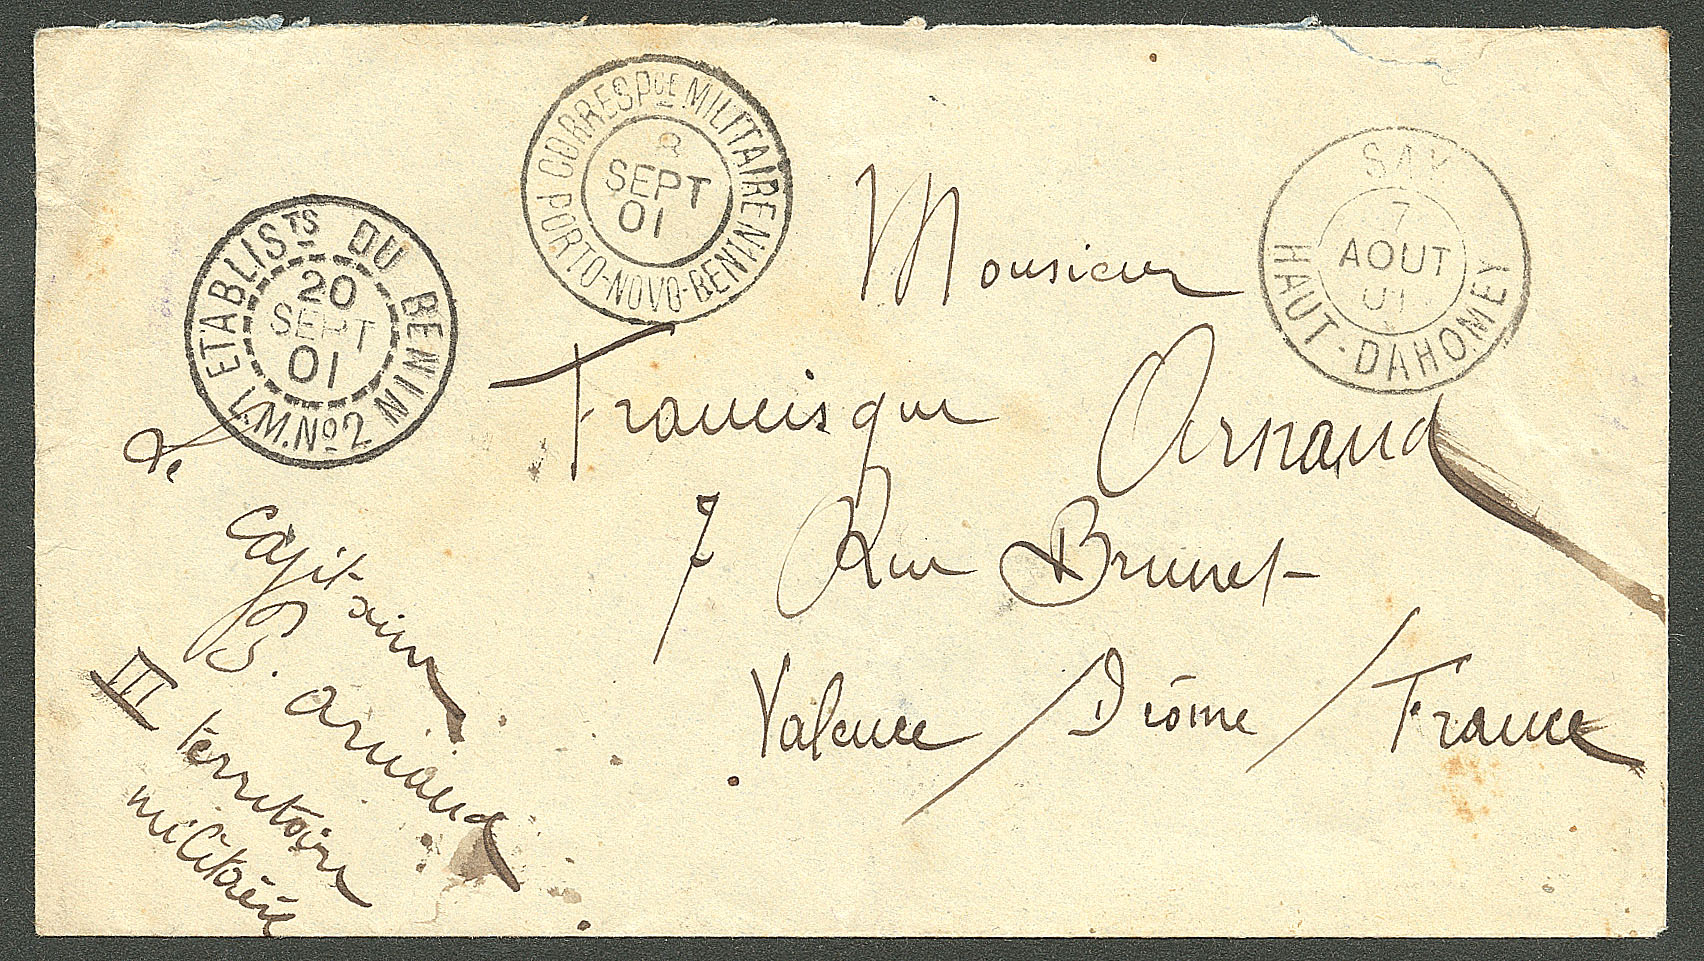 CORRESPCE MILITAIRE
PORTO-NOVO-BENIN
SEPT
01
SAY
7
AOUT
01
HAUT-DAHOMEY
ETABLISTS DU BENIN
20
SEPT
01
L.M.No2
Monsieur
Francisque Arnaud
7 Rue Brunet
Valence / Drôme / France
De
capitaine
P. Arnaud
III territoire
militaire